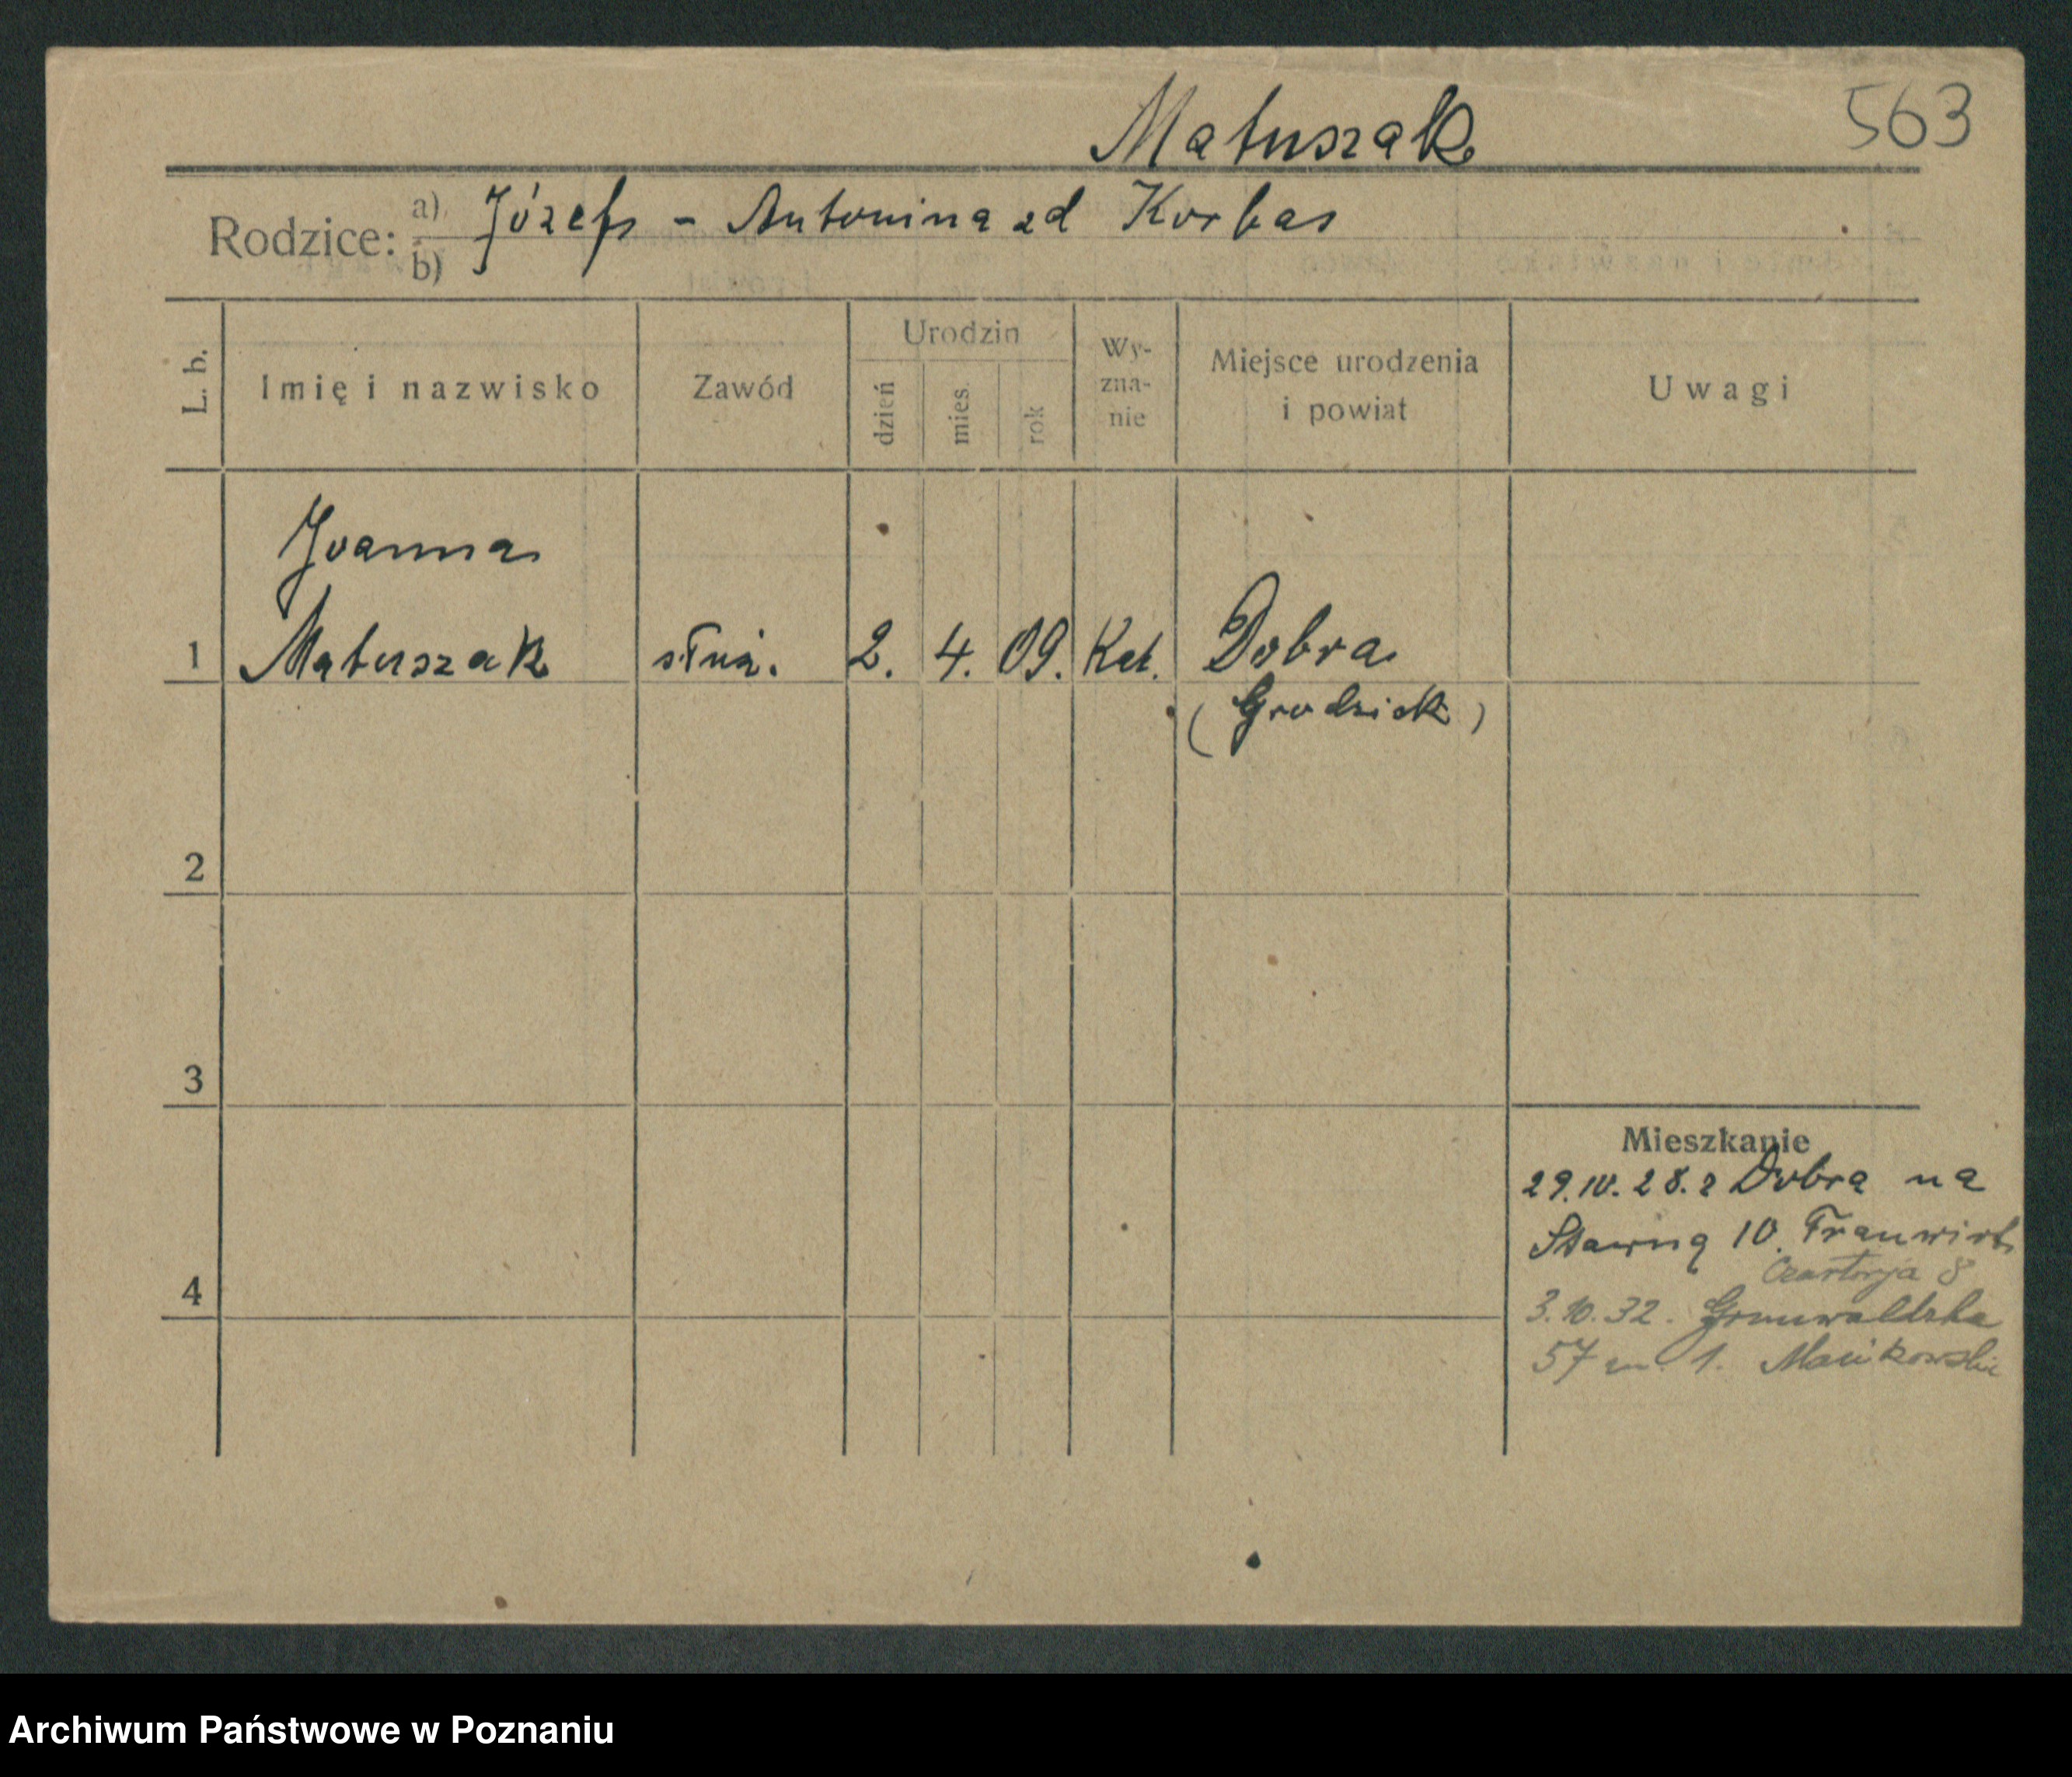 Matuszak 563
Rodzice: a) b) Józef - Antonina zd Korbas
L. b. Imię i nazwisko Zawód Urodzin dzień mies. rok Wy-zna-nie Miejsce urodzenia i powiat Uwagi
Joanna
1 Matuszak służ. 2. 4. 09. Kat. Dobra
(Grodzisk)
2
3
Mieszkanie
29.IV.28. z Dobra na
Stawną 10
4
3.10.32. Grunwaldzka
57 m. 1.
Archiwum Państwowe w Poznaniu